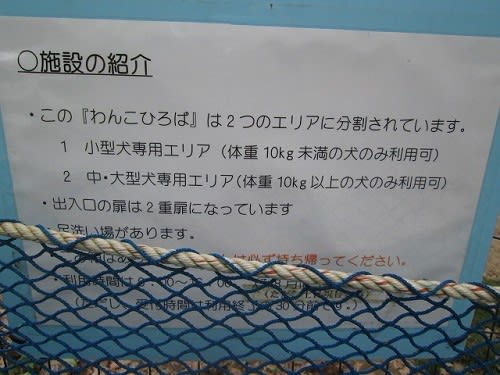 ○施設の紹介
・この『わんこひろば』は2つのエリアに分割されています。
1 小型犬専用エリア（体重10kg未満の犬のみ利用可）
2 中・大型犬専用エリア（体重10kg以上の犬のみ利用可）
・出入口の扉は2重扉になっています
・足洗い場があります。
は必ず持ち帰ってください。
・利用時間は
（ただし、受付時間は利用終了30分前です。）